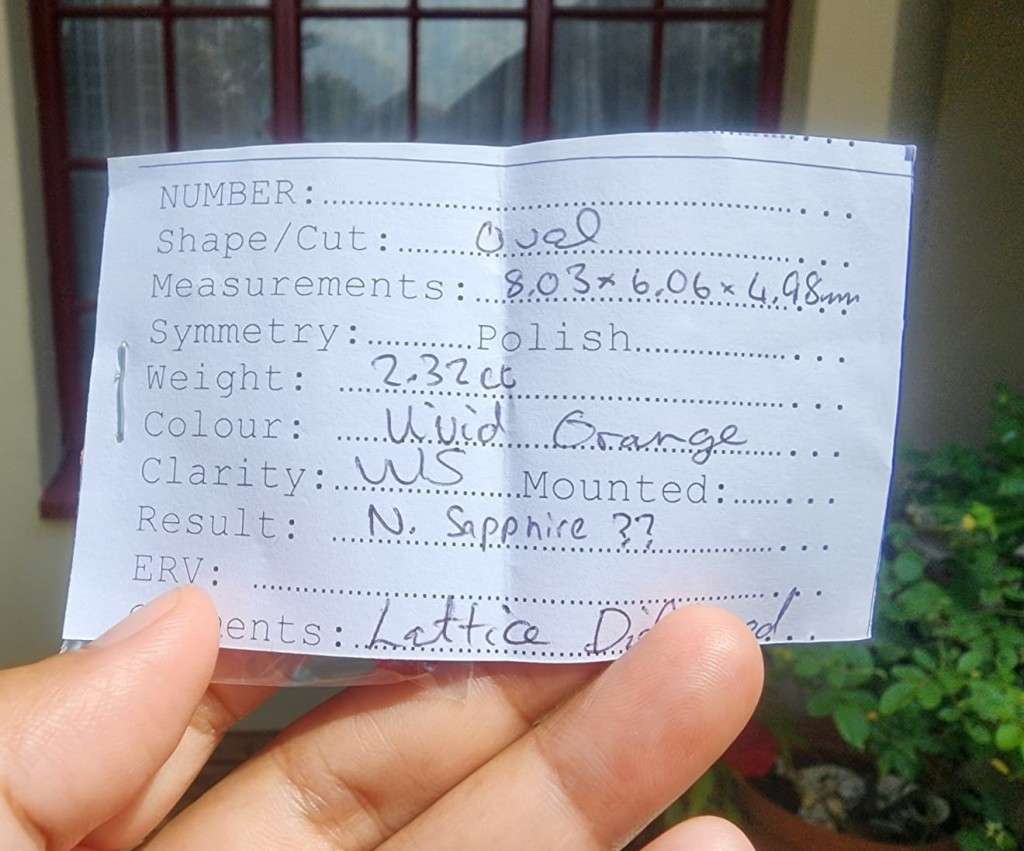 NUMBER:
Shape/Cut: Oval
Measurements: 8.03 x 6.06 x 4.98mm
Symmetry: Polish
Weight: 2.32ct
Colour: Vivid Orange
Clarity: VVS Mounted:
Result: N. Sapphire ??
ERV:
Lattice